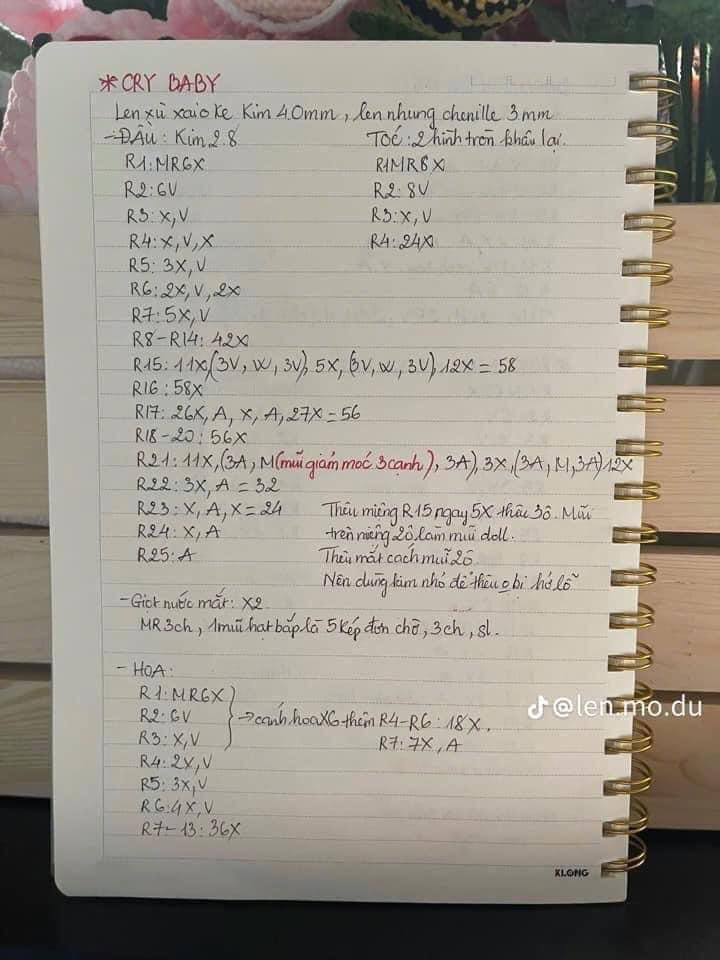 *CRY BABY
Len xù xaioke Kim 4.0mm, len nhung chenille 3mm
- ĐẦU: Kim 2.8
R1: MR6X
R2: 6V
R3: X,V
R4: X,V,X
R5: 3X,V
R6: 2X,V,2X
R7: 5X,V
R8-R14: 42X
R15: 11X,(3V, W, 3V), 5X, (3V, W, 3V), 12X = 58
R16: 58X
R17: 26X, A, X, A, 27X = 56
R18-20: 56X
R21: 11X,(3A, M(mũi giảm móc 3 cạnh), 3A), 3X,(3A, M, 3A) 12X
R22: 3X, A = 32
R23: X, A, X = 24
R24: X, A
R25: A
Tóc: 2 hình tròn khâu lại.
R1MR8X
R2: 8V
R3: X,V
R4: 24X
Thêu miệng R15 ngay 5X thêu 3ô. Mũi
trên miệng 2ô làm mũi doll.
Thêu mắt cách mũi 2ô
Nên dùng kim nhỏ để thêu o bị hở lỗ
- Giọt nước mắt: X2
MR 3ch, 1 mũi hạt bắp là 5 kép đơn chờ, 3ch, sl.
- HOA:
R1: MR6X
R2: 6V
R3: X,V
R4: 2X,V
R5: 3X,V
R6: 4X,V
R7-13: 36X
→ cánh hoa X6 thêm R4-R6: 18X.
R7: 7X, A
@len.mo.du
KLONG